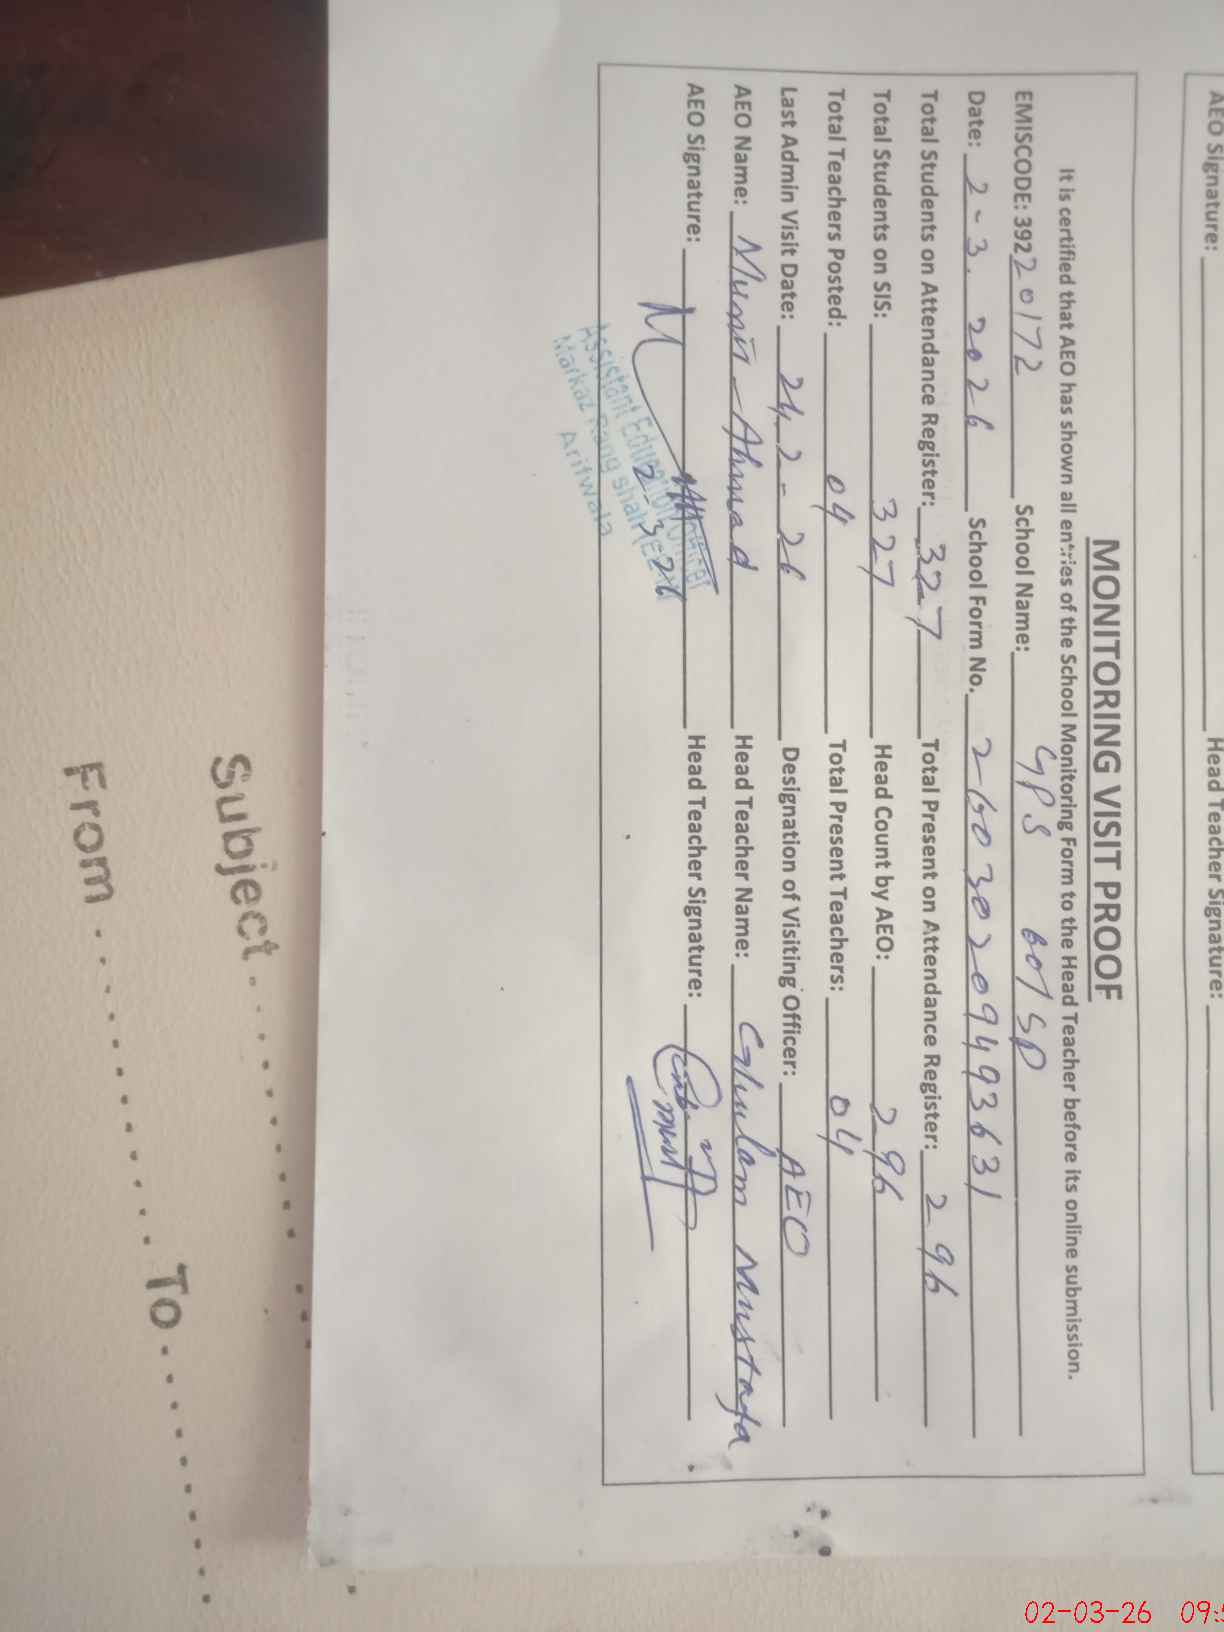 AEO Signature: Head Teacher Signature:
MONITORING VISIT PROOF
It is certified that AEO has shown all entries of the School Monitoring Form to the Head Teacher before its online submission.
EMISCODE: 39220172 School Name: GPS 60/SP
Date: 2-3.2026 School Form No. 2603020949363 1
Total Students on Attendance Register: 327 Total Present on Attendance Register: 296
Total Students on SIS: 327 Head Count by AEO: 296
Total Teachers Posted: 04 Total Present Teachers: 04
Last Admin Visit Date: 24-2-26 Designation of Visiting Officer: AEO
AEO Name: Munir Ahmad Head Teacher Name: Ghulam Mustafa
AEO Signature: Head Teacher Signature:
2-3-26
Assistant Education Officer
Markaz Rang shah
Arifwala
Subject
From To
02-03-26 09:5